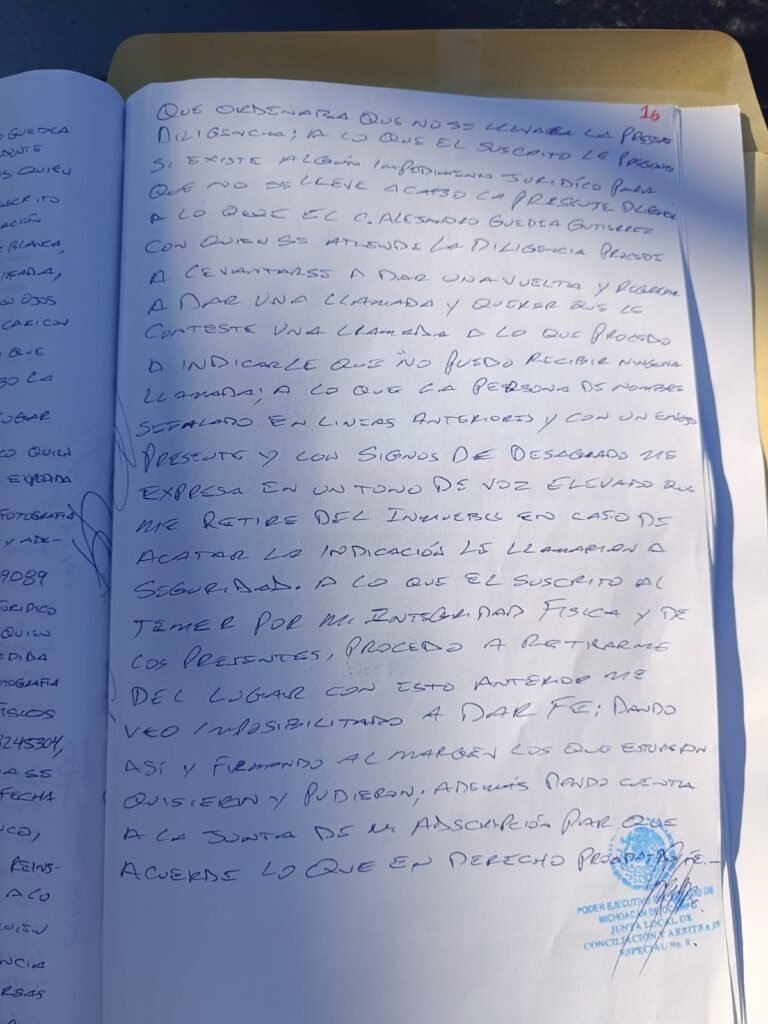 16
QUE ORDENARA QUE NO SE LLEVARA LA PRESENTE
DILIGENCIA; A LO QUE EL SUSCRITO LE PREGUNTO
SI EXISTE ALGUN IMPEDIMENTO JURIDICO PARA
QUE NO SE LLEVE ACABO LA PRESENTE DILIGEN
A LO QUE EL C. ALEJANDRO GUEDEA GUTIERREZ
CON QUIEN SE ATIENDE LA DILIGENCIA PROCEDE
A LEVANTARSE A DAR UNA VUELTA Y REGRESA
A DAR UNA LLAMADA Y QUERER QUE LE
CONTESTE UNA LLAMADA A LO QUE PROCEDO
A INDICARLE QUE NO PUEDO RECIBIR NINGUNA
LLAMADA; A LO QUE LA PERSONA DE NOMBRE
SEÑALADO EN LINEAS ANTERIORES Y CON UN ENOJO
PRESENTE Y CON SIGNOS DE DESAGRADO ME
EXPRESA EN UN TONO DE VOZ ELEVADO QUE
ME RETIRE DEL INMUEBLE EN CASO DE
ACATAR LA INDICACIÓN LE LLAMARION A
SEGURIDAD. A LO QUE EL SUSCRITO AL
TEMER POR MI INTEGRIDAD FISICA Y DE
LOS PRESENTES, PROCEDO A RETIRARME
DEL LUGAR CON ESTO ANTERIOR ME
VEO IMPOSIBILITADO A DAR FE; DANDO
ASI Y FIRMANDO AL MARGEN LOS QUE
QUISIERON Y PUDIERON; ADEMÁS DANDO CUENTA
A LA JUNTA DE MI ADSCRIPCIÓN PAR QUE
ACUERDE LO QUE EN DERECHO
PODER EJECUTIVO DEL ESTADO DE
MICHOACÁN DE OCAMPO
JUNTA LOCAL DE
CONCILIACIÓN Y ARBITRAJE
ESPECIAL No.
GUEDEA
QUIEN
BLANCA,
OJOS
QUE
LA
LUGAR
QUIEN
FOTOGRAFIA
Y ADE-
9089
JURIDICO
QUIEN
FISICOS
8245304,
FECHA
REINS-
A LO